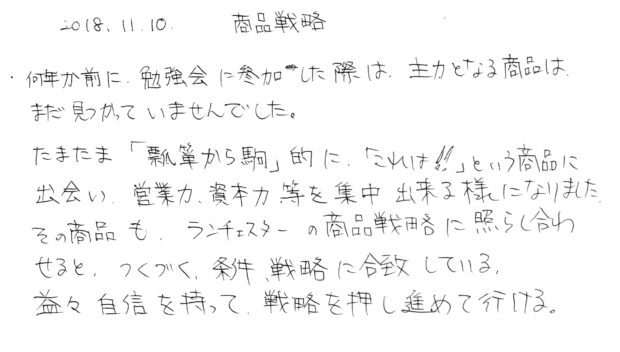 2018.11.10. 商品戦略
・何年か前に、勉強会に参加した際は、主力となる商品は、
まだ見つかっていませんでした。
たまたま「瓢箪から駒」的に、「これは!!」という商品に
出会い、営業力、資本力等を集中出来る様になりました。
その商品も、ランチェスターの商品戦略に照らし合わ
せると、つくづく、条件、戦略に合致している。
益々自信を持って、戦略を押し進めて行ける。